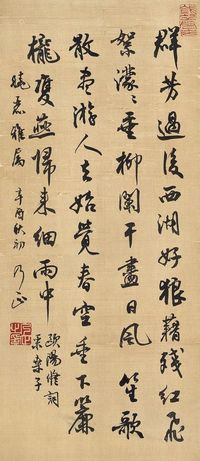 群芳過後西湖好狼藉殘紅飛
絮濛〻垂柳闌干盡日風笙歌
散盡游人去始覺春空垂下簾
櫳雙燕歸來細雨中
歐陽脩詞
采桑子
雅屬 辛酉秋初 乃正